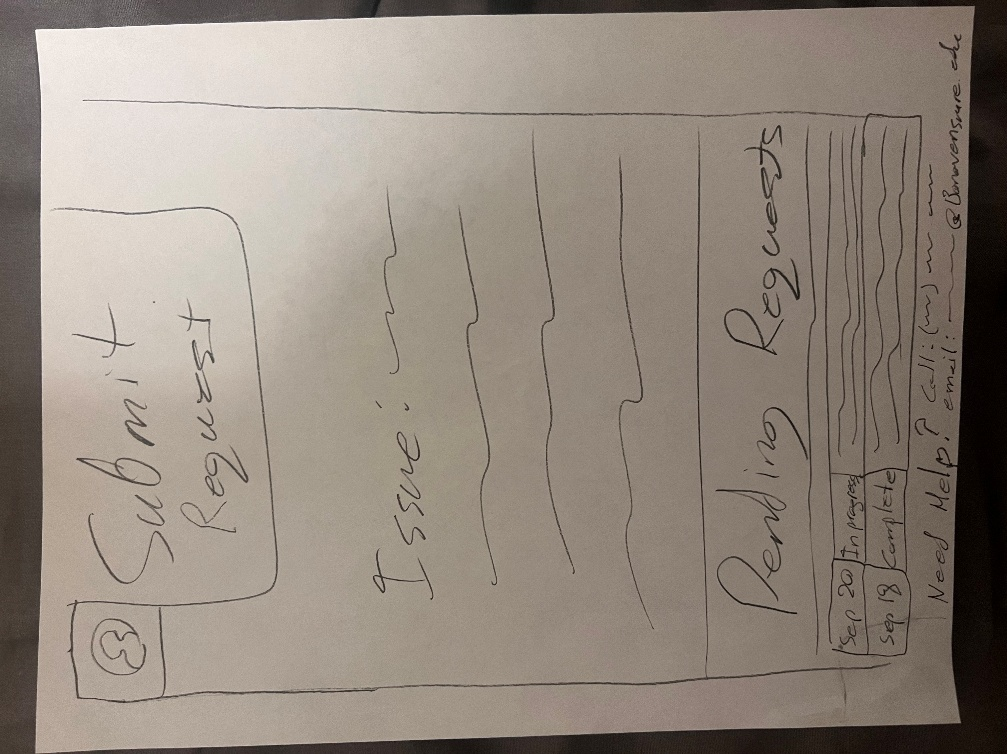 Submit
Request
Issue:
Pending Requests
Sep 20 In progress
Sep 18 Complete
Need Help? Call:
email: @Bonaventure.edu